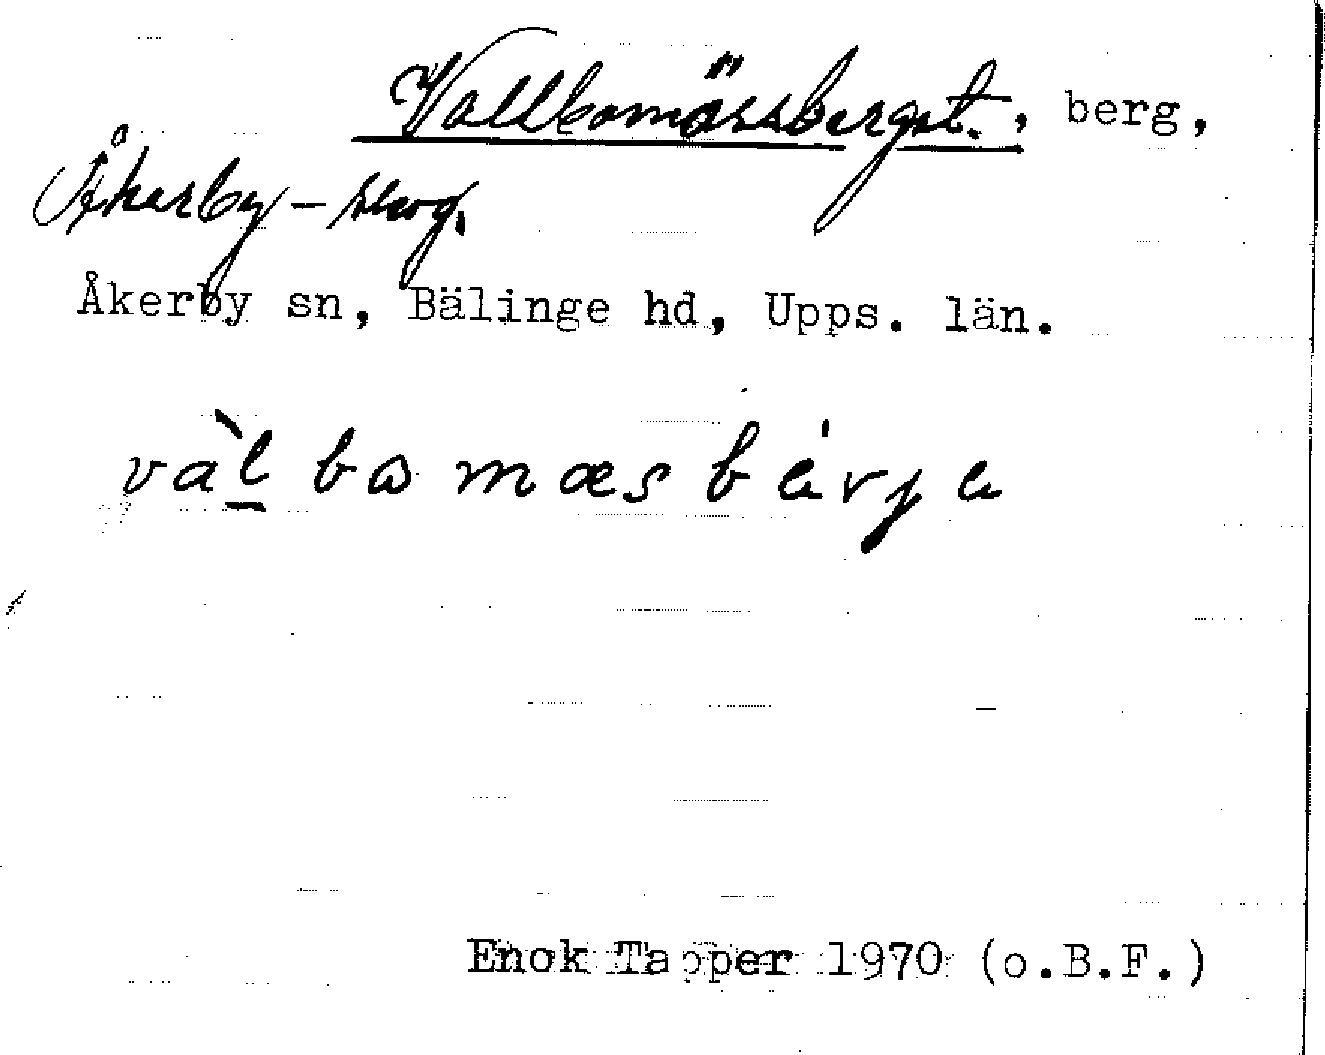 Vallbomässberget., berg,
Åkerby-skog.
Åkerby sn, Bälinge hd, Upps. län.
vàl bo mæs bérje
Enok Tapper 1970 (o.B.F.)